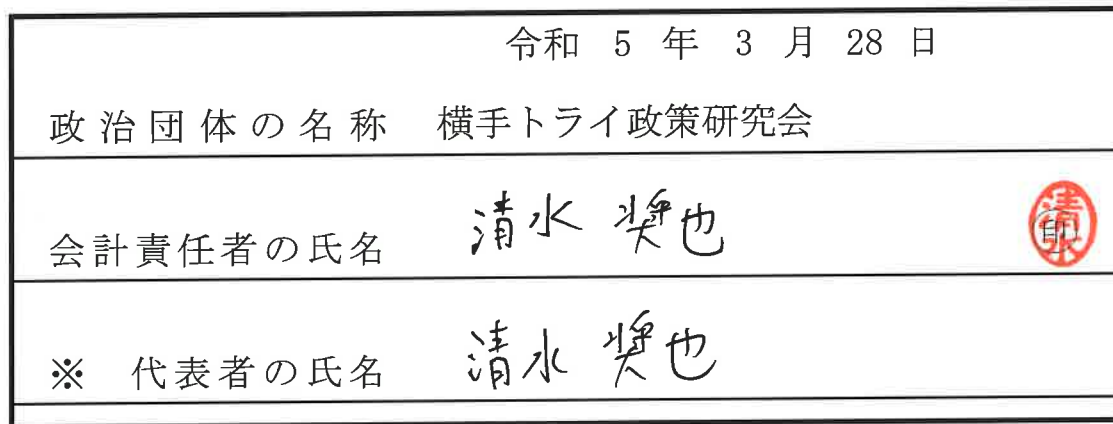 令和 5 年 3 月 28 日
政治団体の名称 横手トライ政策研究会
会計責任者の氏名 清水 奨也 清水 印
※ 代表者の氏名 清水 奨也